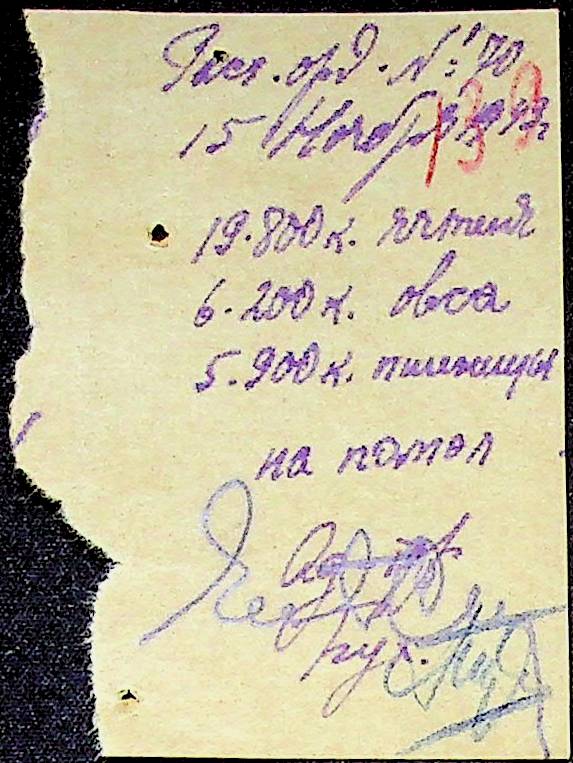 Расх. орд. № 70
15 Ноября
139
19.800 к. ячменя
6.200 к. овса
5.900 к. пшеницы
на помол